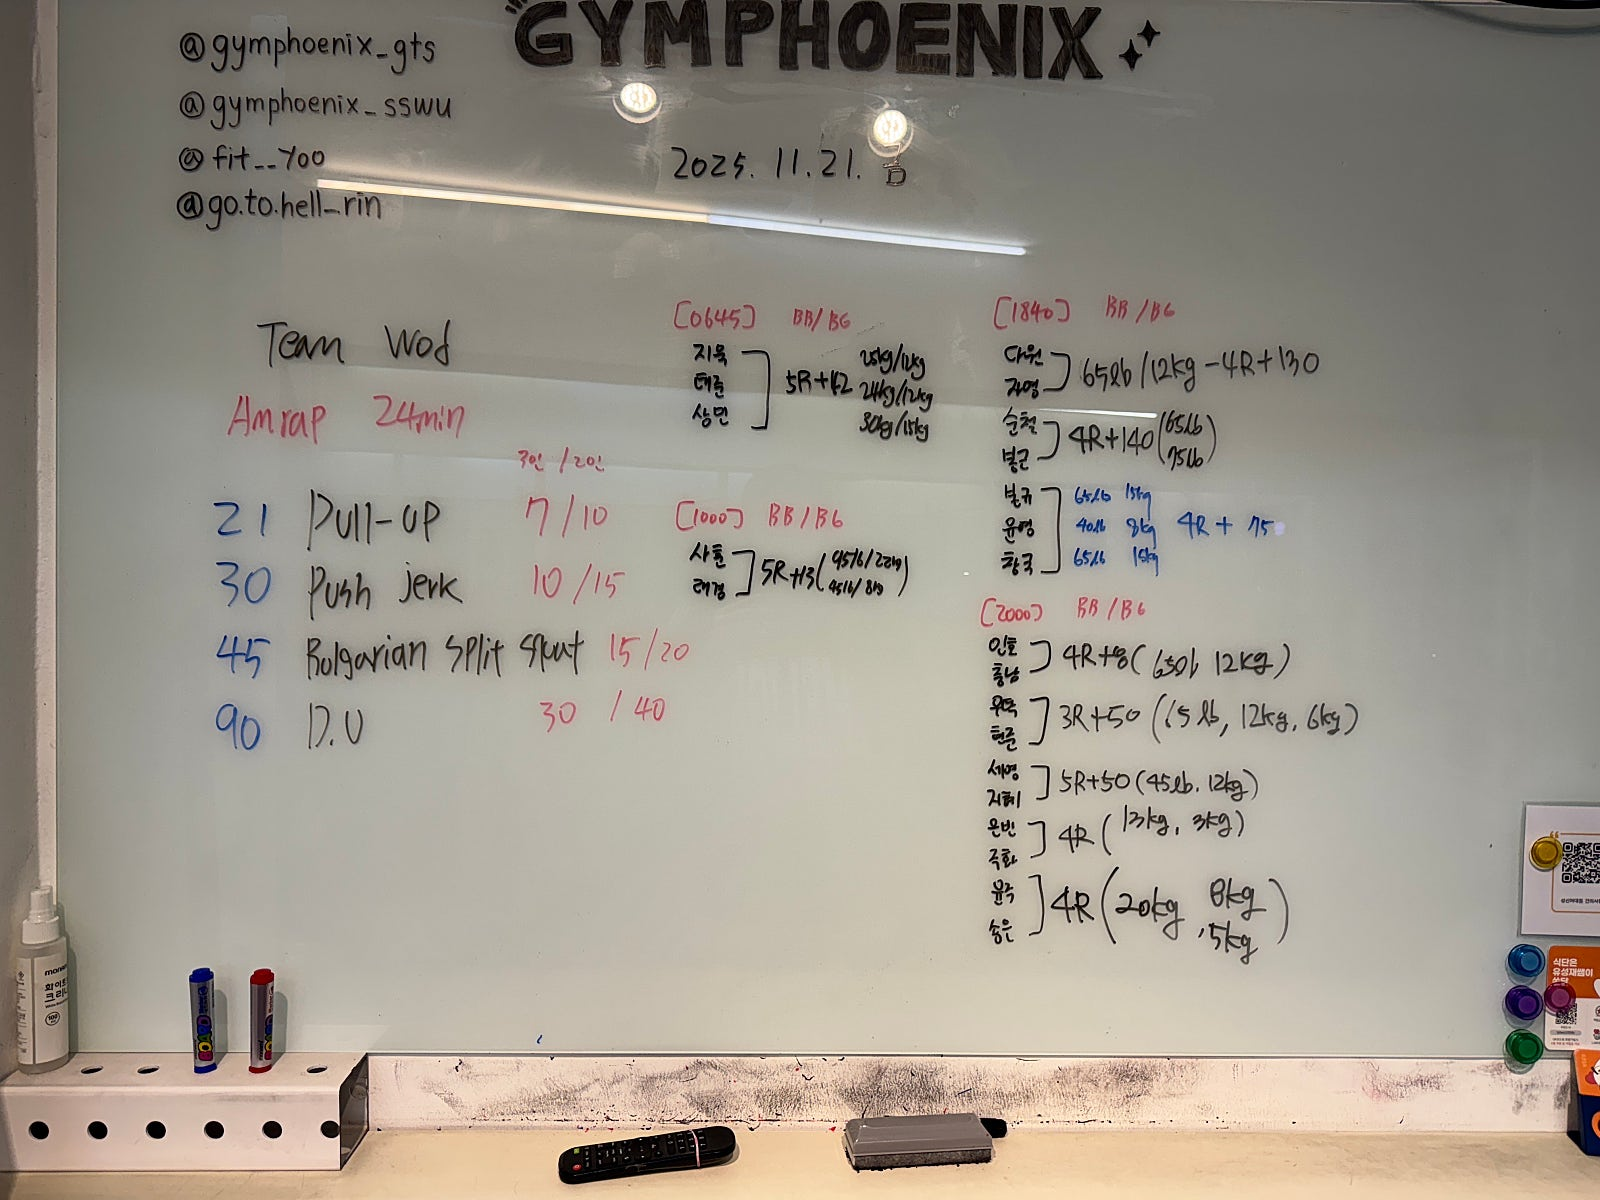 GYMPHOENIX
@gymphoenix_gts
@gymphoenix_sswu
@fit__yoo
@go.to.hell_rin
2025. 11. 21. 금
Team Wod
Amrap 24min
3인 / 2인
21 Pull-up 7/10
30 Push jerk 10/15
45 Bulgarian split squat 15/20
90 D.U 30 / 40
[0645] BB/BG
지욱
태준
상민
5R+42
25kg/12kg
24kg/12kg
30kg/15kg
[1000] BB/BG
사훈
태경
5R+13(95lb/22kg
45lb/8kg)
[1840] BB/BG
다원
자영
65lb/12kg-4R+130
순철
봉근
4R+140(65lb
75lb)
별규
윤영
황국
65lb 15kg
40lb 8kg 4R + 75
65lb 15kg
[2000] BB/BG
인호
충남
4R+8(65lb 12kg)
현준
3R+50 (65lb, 12kg, 6kg)
세영
지혜
5R+50 (45lb. 12kg)
은빈
국화
4R(13kg, 3kg)
윤주
송은
4R(20kg, 8kg
5kg)
화이트
크리너
BOARD
BOARD
식단은
유성재쌤이
쏜닭